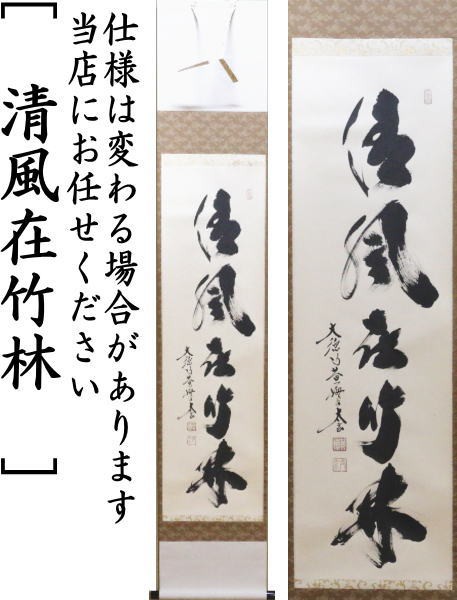 仕様は変わる場合があります
当店にお任せください
［清風在竹林］
清風在竹林
清風在竹林